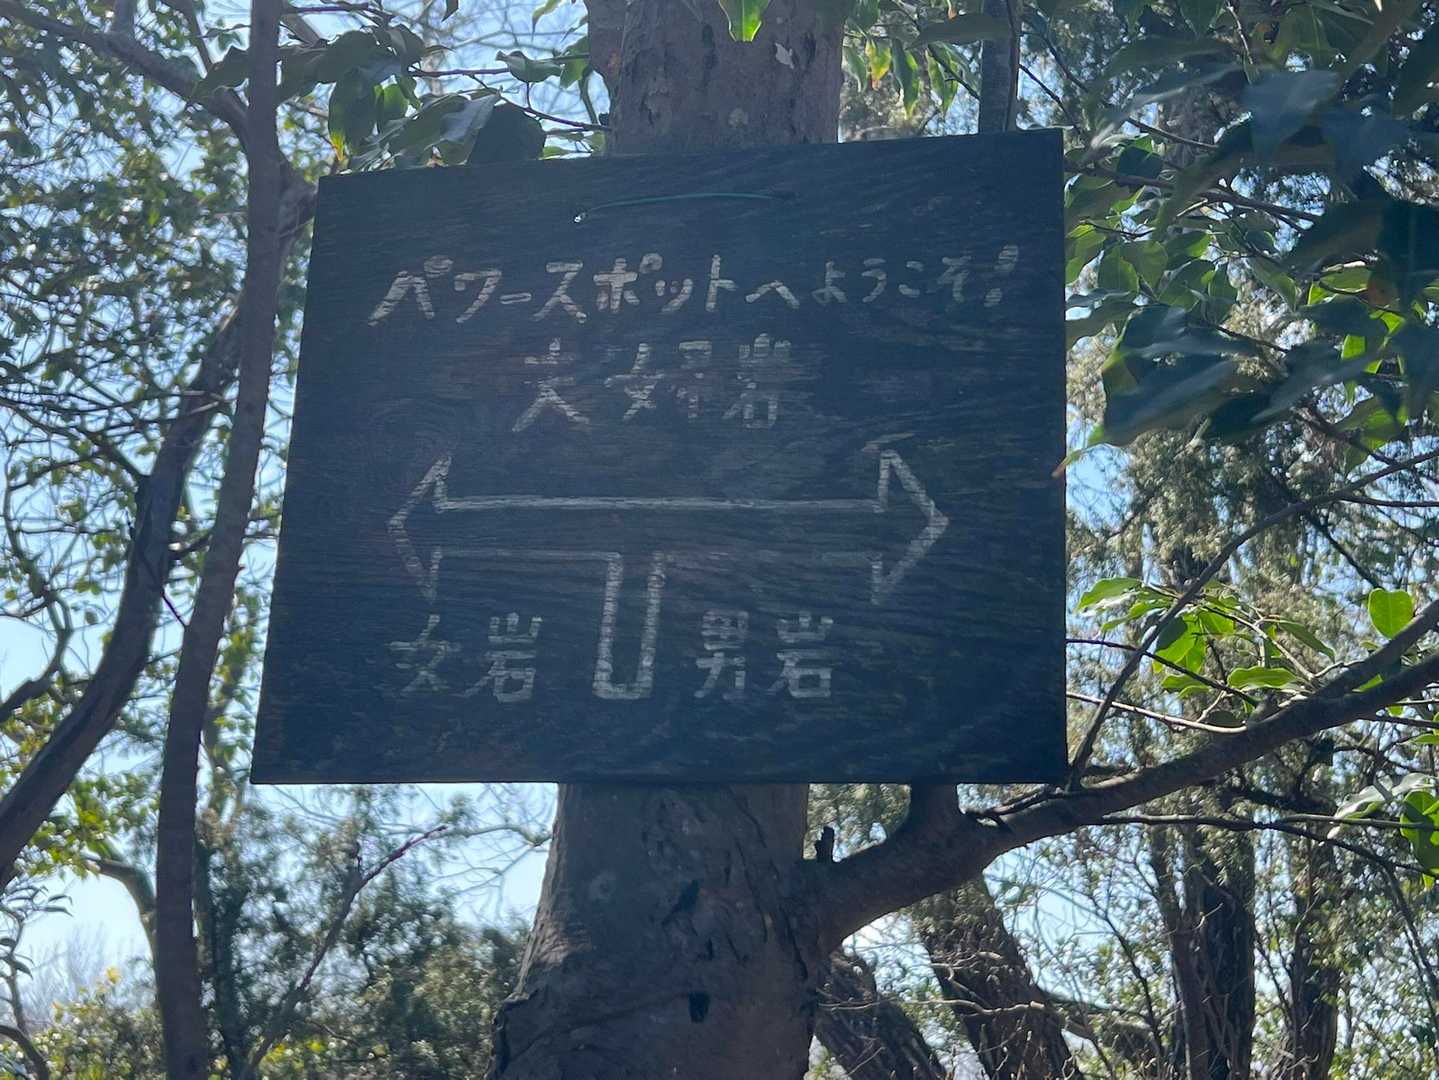 パワースポットへようこそ!
夫婦岩
女岩 男岩